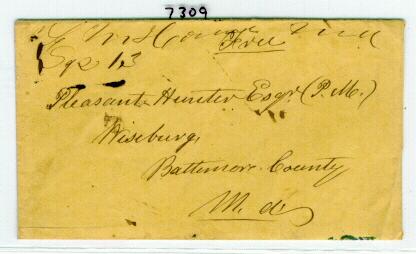 7309
Free
Sep 13
Pleasant Hunter Esqr. (P.M.)
Wiseburg,
Baltimore County
M. d